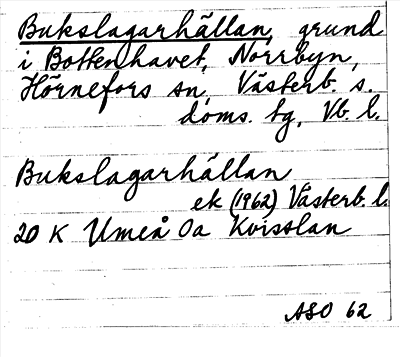 Bukslagarhällan, grund
i Bottenhavet, Norrbyn,
Hörnefors sn, Västerb. s.
doms. tg, Vb. l.
Bukslagarhällan
ek (1962) Västerb. l.
20 K Umeå Oa Kvisslan
ASO 62